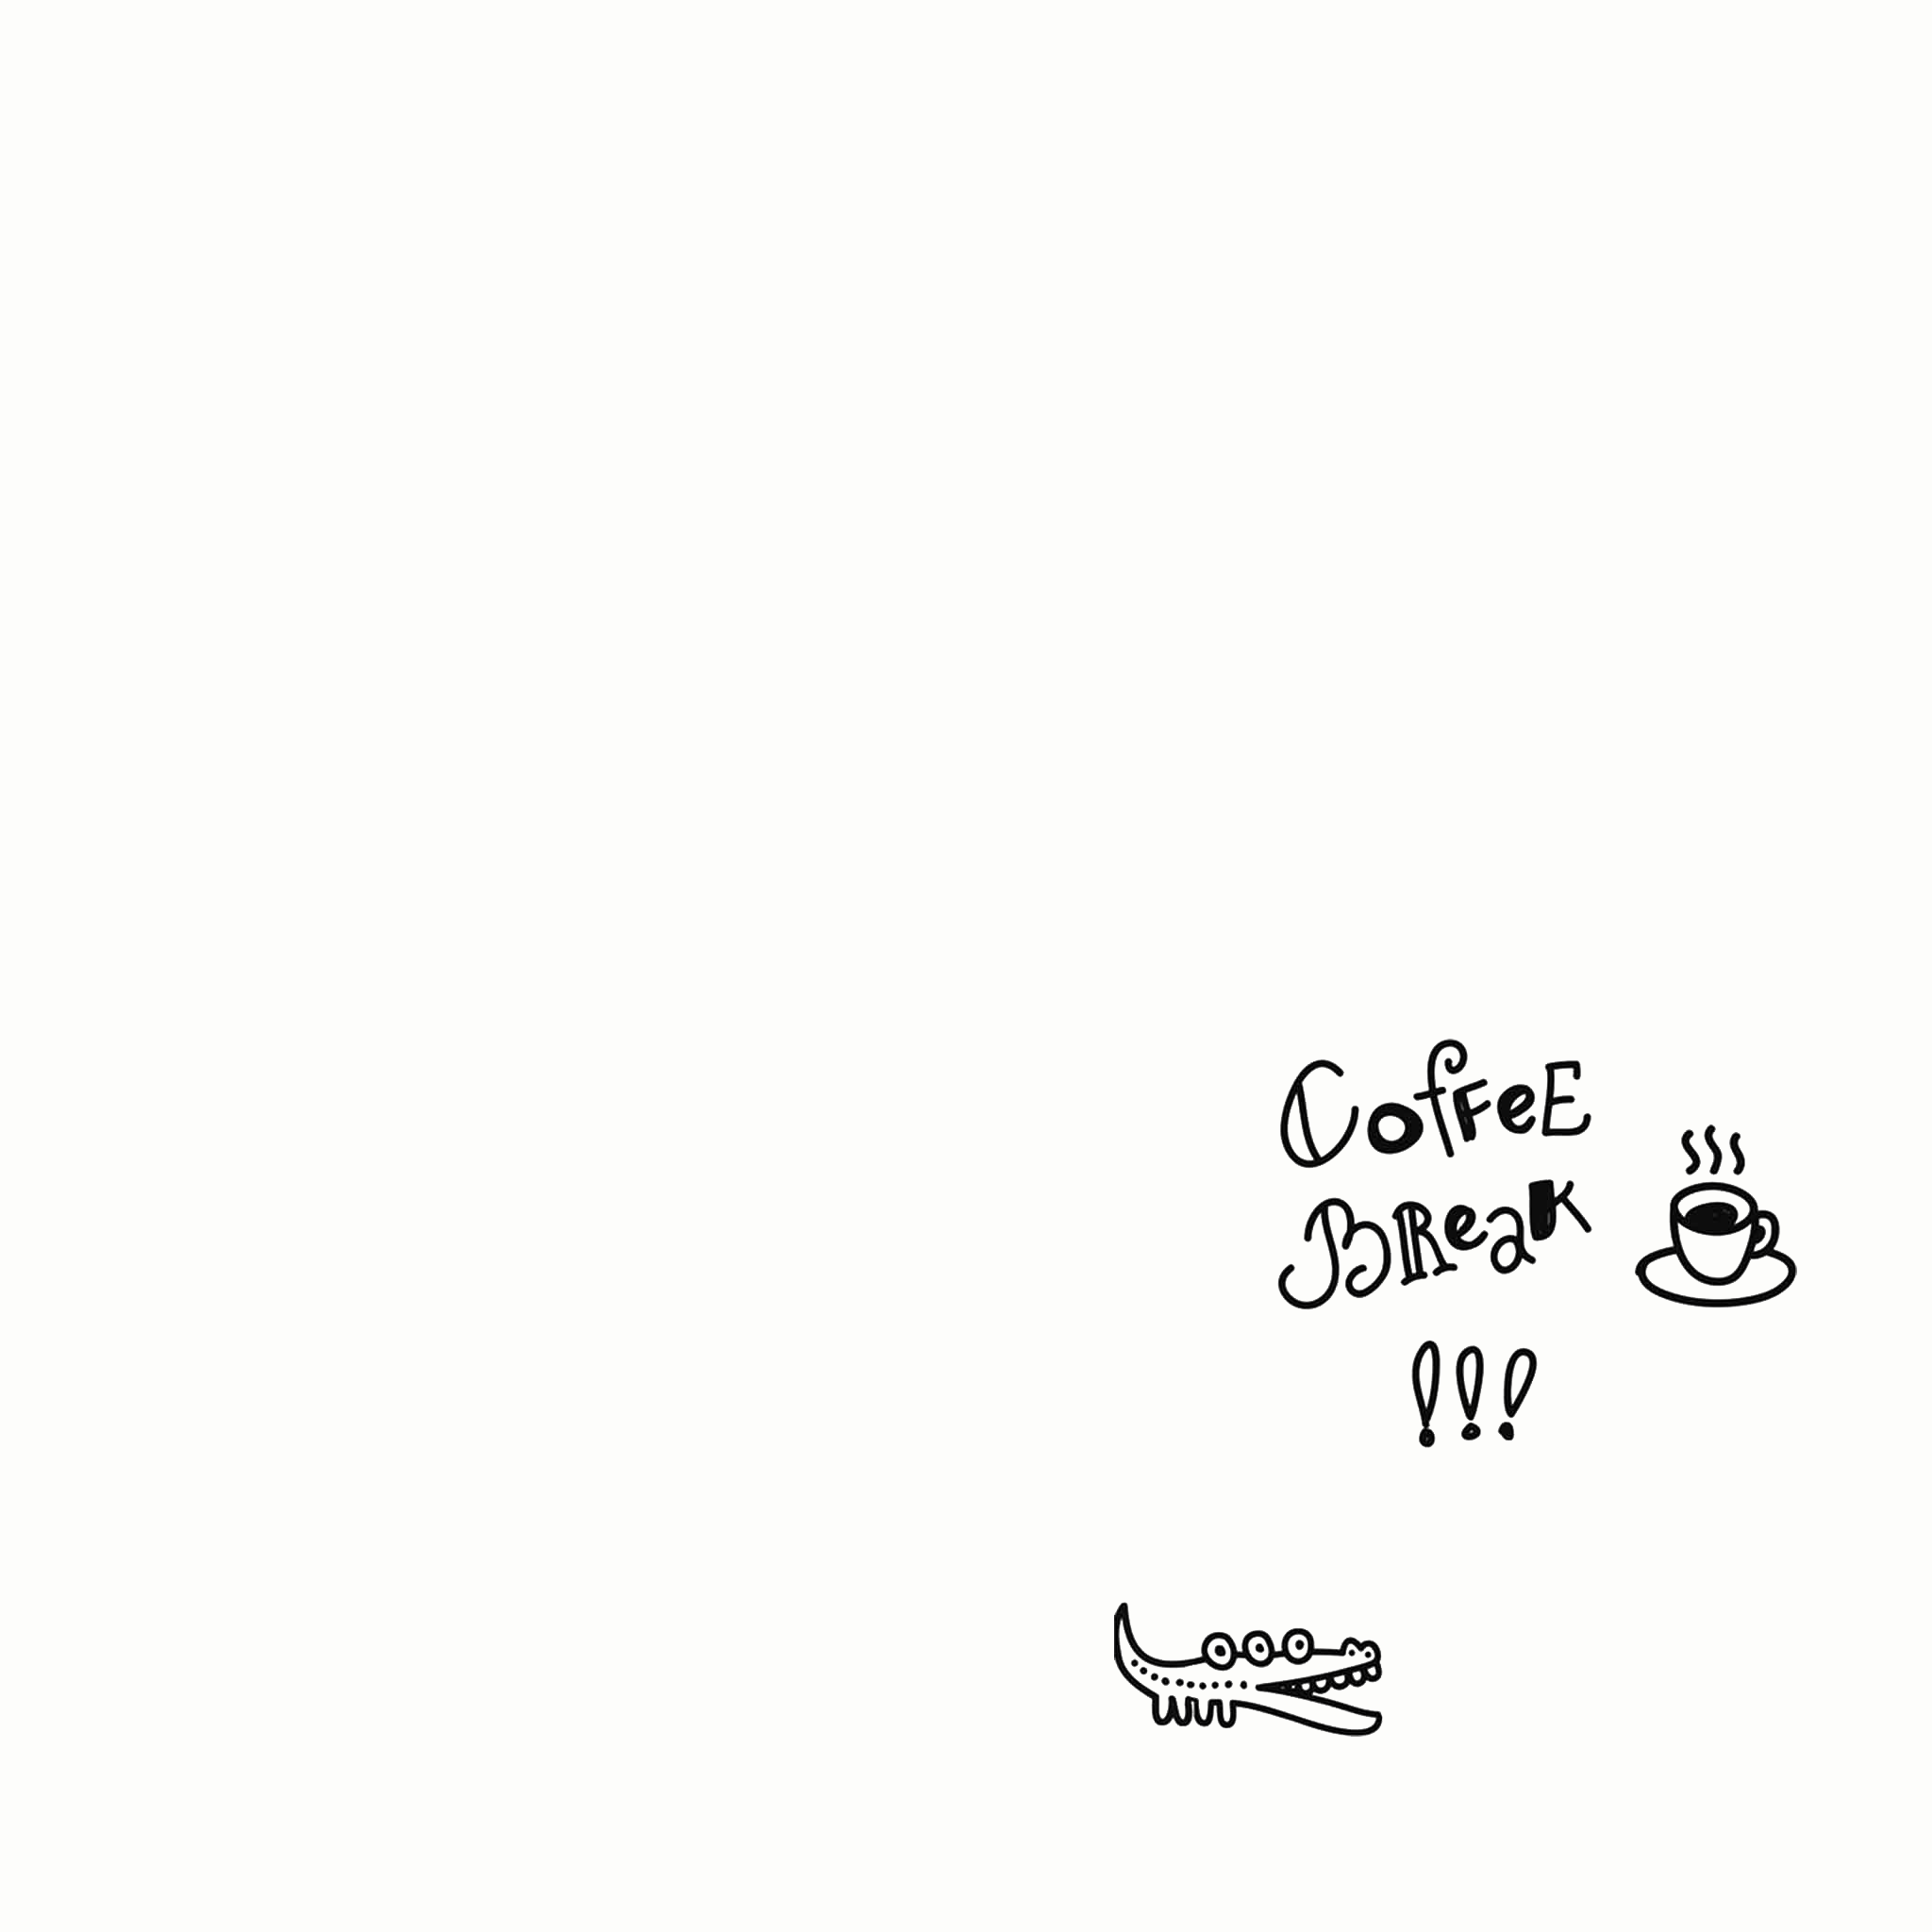 CoffeE
BReaK
!!!